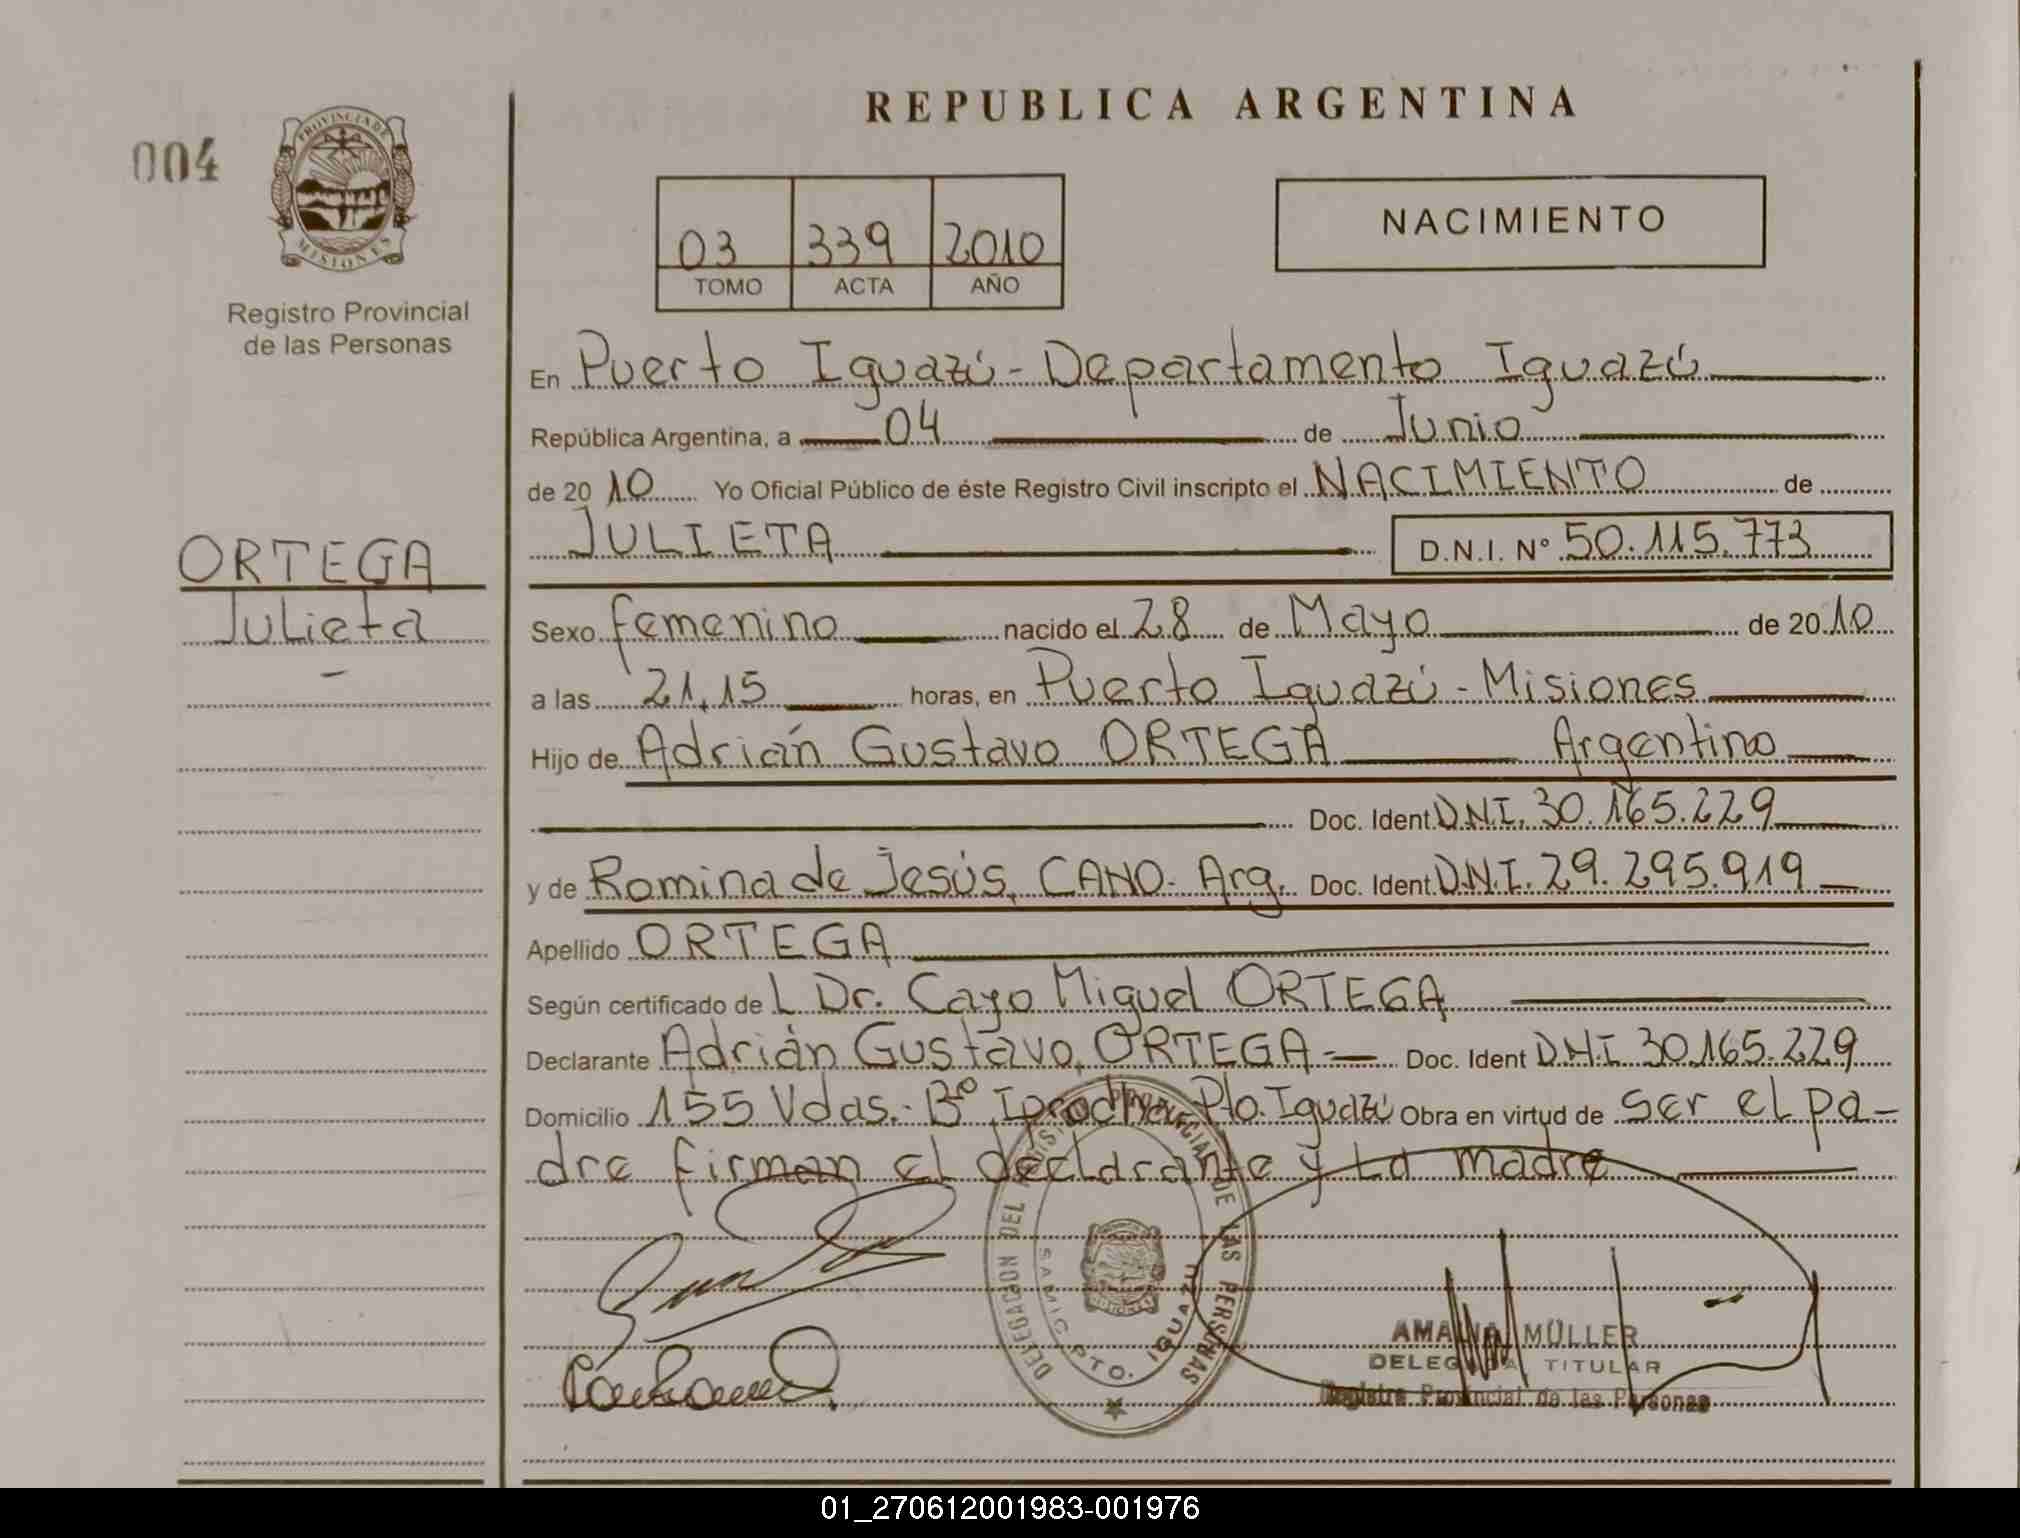 REPUBLICA ARGENTINA
004
PROVINCIA DE
MISIONES
Registro Provincial
de las Personas
03 339 2010
TOMO ACTA AÑO
NACIMIENTO
En Puerto Iguazú - Departamento Iguazú
República Argentina, a 04 de Junio
de 20 10 Yo Oficial Público de éste Registro Civil inscripto el NACIMIENTO de
JULIETA D.N.I. N° 50.115.773
ORTEGA
Julieta
-
Sexo femenino nacido el 28 de Mayo de 20 10
a las 21,15 horas, en Puerto Iguazú - Misiones
Hijo de Adrián Gustavo ORTEGA Argentino
Doc. Ident. D.N.I. 30.165.229
y de Romina de Jesús, CANO - Arg. Doc. Ident. D.N.I. 29.295.919
Apellido ORTEGA
Según certificado de L Dr. Cayo Miguel ORTEGA
Declarante Adrián Gustavo, ORTEGA - Doc. Ident DNI 30.165.229
Domicilio 155 Vdas. - B° Iprodha Pto. Iguazú Obra en virtud de ser el pa-
dre firman el declarante y la madre
DELEGACION DEL REGISTRO PROVINCIAL DE LAS PERSONAS
SAMIC PTO. IGUAZU
AMALIA MÜLLER
DELEGADA TITULAR
Registro Provincial de las Personas
01_270612001983-001976